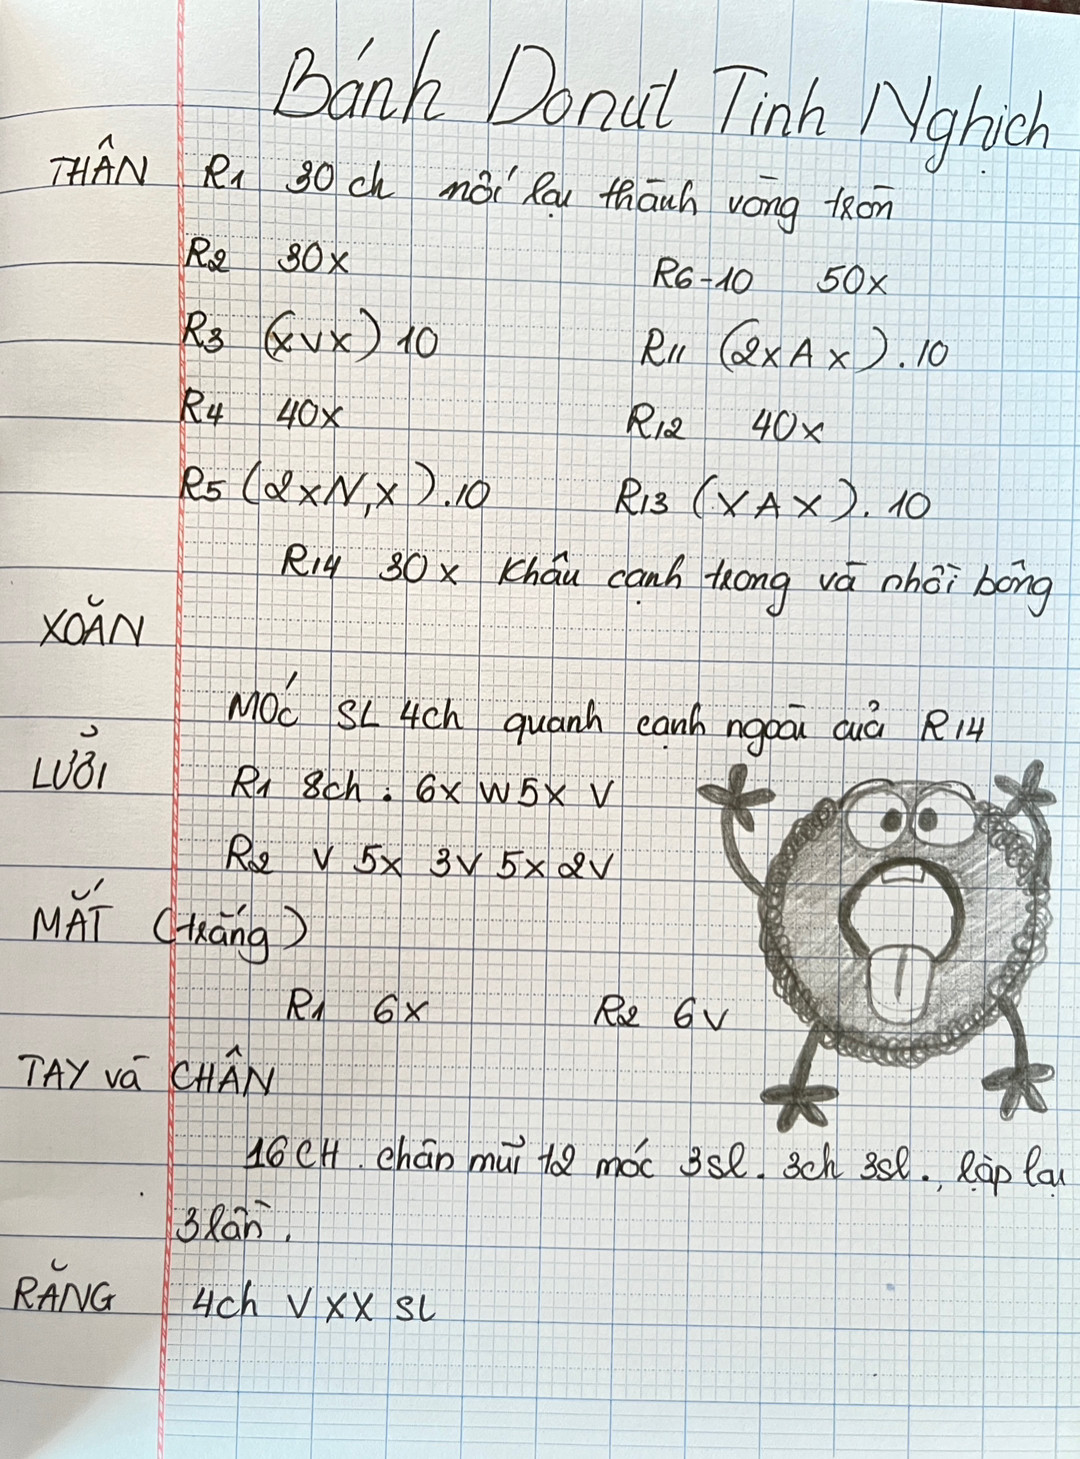 Bánh Donut Tinh Nghịch
THÂN R1 30 ch nối lại thành vòng tròn
R2 30x R6-10 50x
R3 (xvx) 10 R11 (2xAx).10
R4 40x R12 40x
R5 (2xV,x).10 R13 (XAX).10
R14 30x Khâu cạnh trong và nhồi bông
XOĂN
MÓC SL 4ch quanh cạnh ngoài của R14
LƯỠI R1 8ch. 6x W5x V
R2 V 5x 3V 5x 2V
MẮT (trắng)
R1 6x R2 6V
TAY và CHÂN
16CH. chân mũi t2 móc 3sl. 3ch 3sl., lặp lại
3 lần.
RĂNG 4ch V XX SL